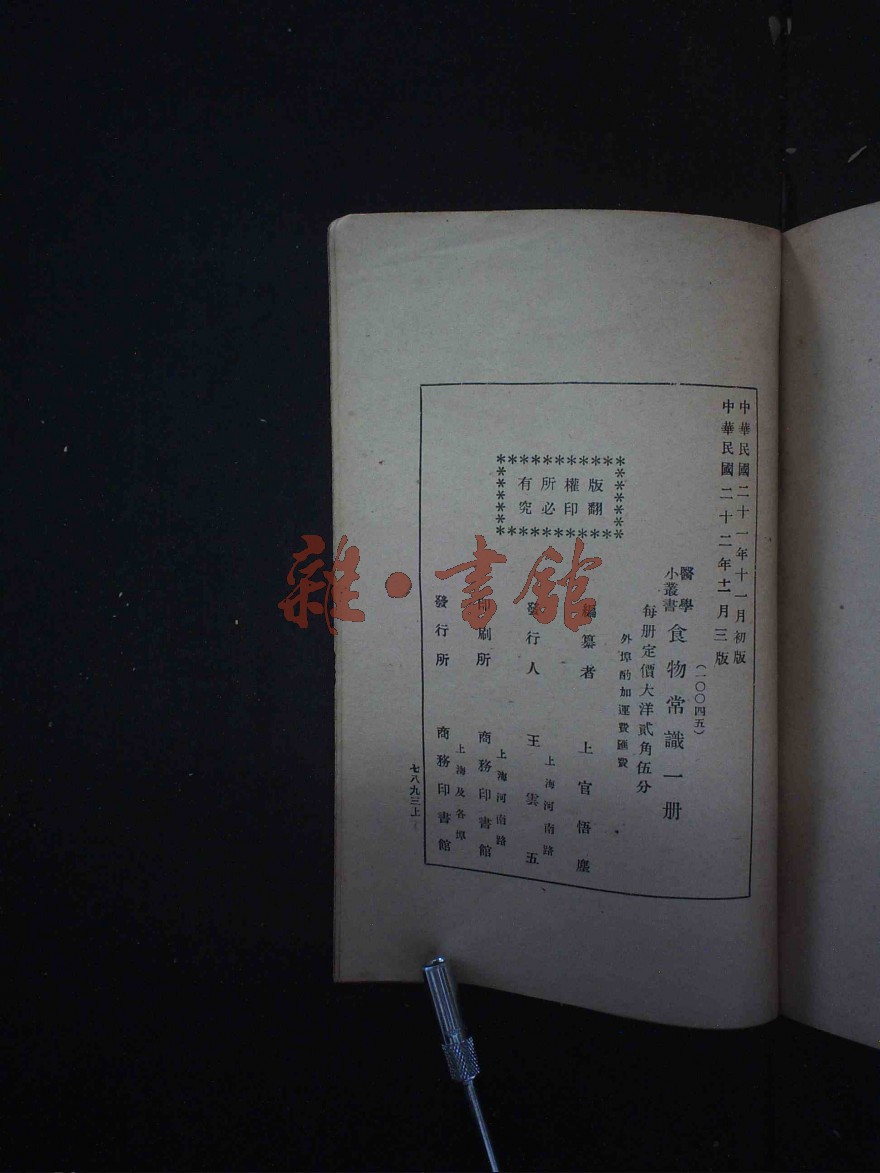 中華民國二十一年十一月初版
中華民國二十二年十一月三版
(一〇〇四五)
醫學
小叢書
食物常識一册
每册定價大洋貳角伍分
外埠酌加運費匯費
版權所有
翻印必究
編纂者 上官悟塵
上海河南路
發行人 王雲五
上海河南路
印刷所 商務印書館
上海及各埠
發行所 商務印書館
七八九三上
雜·書館